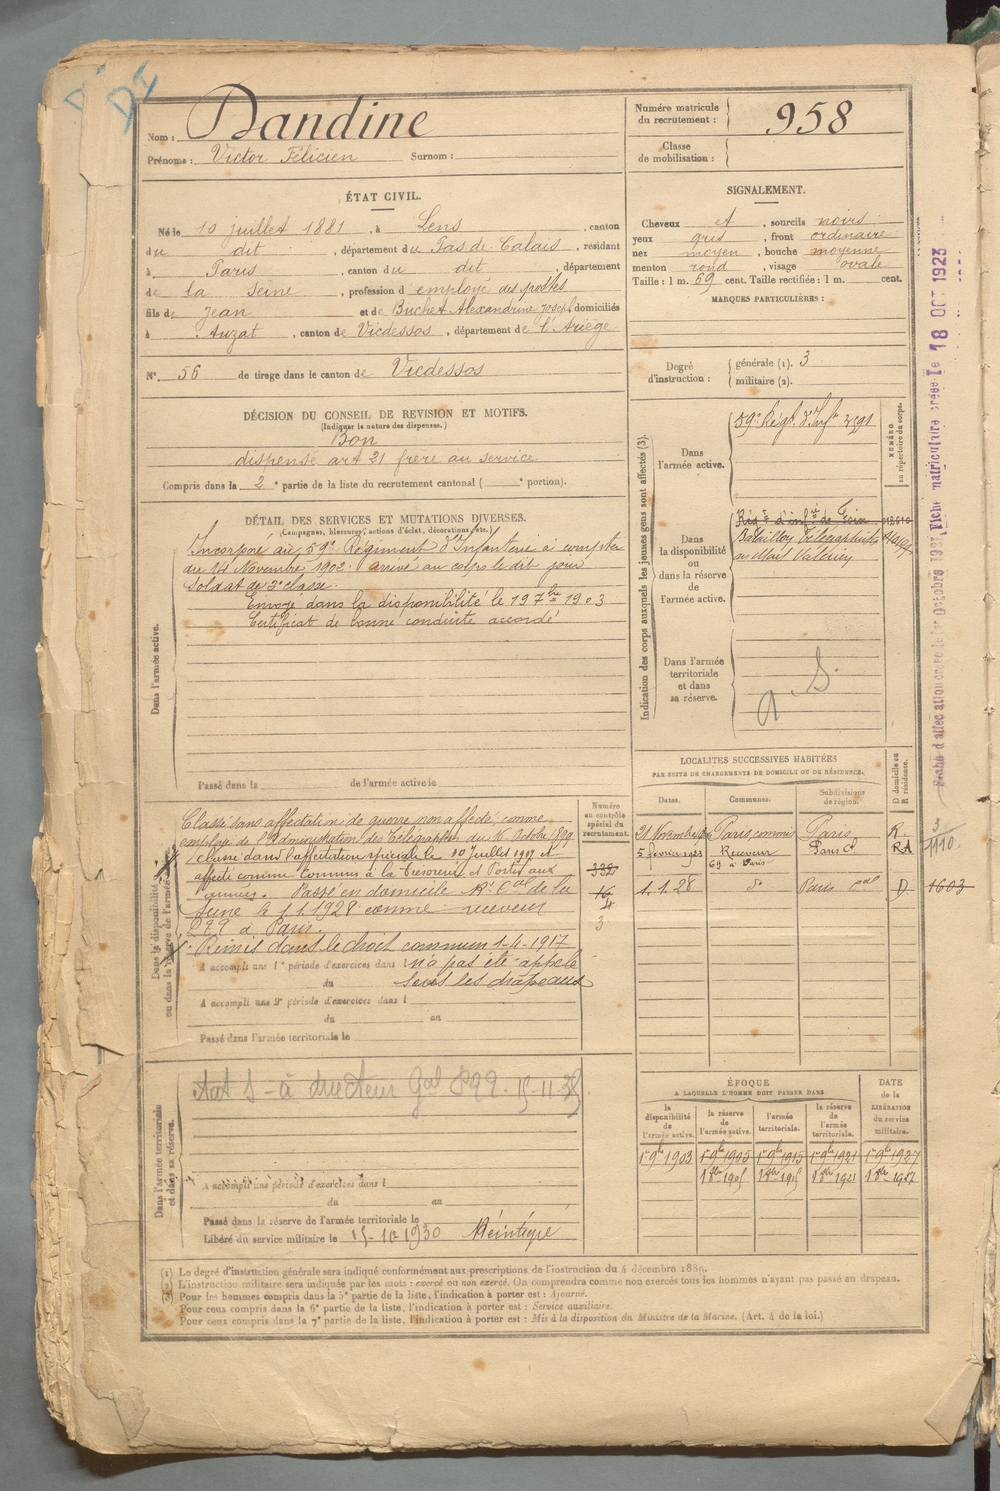 Nom : Dandine
Prénoms : Victor Félicien Surnom :
Numéro matricule du recrutement : 958
Classe de mobilisation :
ÉTAT CIVIL.
Né le 10 juillet 1881, à Lens, canton
du dit, département du Pas de Calais, résidant
à Paris, canton du dit, département
de la Seine, profession d employé des postes
fils de Jean et de Buchet Alexandrine Joseph, domiciliés
à Auzat, canton de Vicdessos, département de l'Ariège
N°. 56 de tirage dans le canton de Vicdessos
SIGNALEMENT.
Cheveux et, sourcils noirs
yeux gris, front ordinaire
nez moyen, bouche moyenne
menton rond, visage ovale
Taille : 1 m. 69 cent. Taille rectifiée : 1 m. cent.
MARQUES PARTICULIÈRES :
Degré d'instruction : générale (1). 3
militaire (2).
DÉCISION DU CONSEIL DE REVISION ET MOTIFS.
(Indiquer la nature des dispenses.)
Bon
dispensé art 21 frère au service
Compris dans la 2e partie de la liste du recrutement cantonal ( e portion).
DÉTAIL DES SERVICES ET MUTATIONS DIVERSES.
(Campagnes, blessures, actions d'éclat, décorations, etc.)
Dans l'armée active.
Incorporé au 59e Régiment d'Infanterie à compter
du 14 Novembre 1902. Arrivé au corps le dit jour
Soldat de 2e classe.
Envoyé dans la disponibilité le 19 7bre 1903
Certificat de bonne conduite accordé
Passé dans la de l'armée active le
Indication des corps auxquels les jeunes gens sont affectés (3).
NUMÉRO au répertoire du corps.
Dans l'armée active.
59e Régt d'Infie
Dans la disponibilité ou dans la réserve de l'armée active.
Régt d'infie de Foix
Bataillon Télégraphistes
au Mont Valérien
Dans l'armée territoriale et dans sa réserve.
LOCALITÉS SUCCESSIVES HABITÉES
PAR SUITE DE CHANGEMENTS DE DOMICILE OU DE RÉSIDENCE.
Dates. Communes. Subdivisions de région. D domicile ou R résidence.
Paris commis Paris R.
5 février 1923 Receveur 69 à Paris Paris Cal RA
1.1.28 do Paris Cal D 1603
Numéro au contrôle spécial du recrutement.
Classé sans affectation de guerre non affecté comme
employé de l'Administration des Télégraphes du
Classé dans l'affectation spéciale le 10 Juillet 1917 et
affecté comme Commis à la Trésorerie et Postes aux
armées. Passé en domicile Rt Cal de la
Seine le 1.1.1928 comme receveur
à Paris.
Remis dans le droit commun 1-4-1917
A accompli une 1re période d'exercices dans l n'a pas été appelé
du sous les drapeaux
A accompli une 2e période d'exercices dans l
du au
Passé dans l'armée territoriale le
Dans l'armée territoriale et dans sa réserve.
A accompli une période d'exercices dans l
du au
Passé dans la réserve de l'armée territoriale le
Libéré du service militaire le 15-10-1930 Réintégré
ÉPOQUE
A LAQUELLE L'HOMME DOIT PASSER DANS
la disponibilité de l'armée active. la réserve de l'armée active. l'armée territoriale. la réserve de l'armée territoriale. DATE de la LIBÉRATION du service militaire.
1er 9bre 1903 1er 9bre 1905 1er 9bre 1915 1er 9bre 1921 1er 9bre 1927
(1) Le degré d'instruction générale sera indiqué conformément aux prescriptions de l'instruction du 4 décembre 1889.
(2) L'instruction militaire sera indiquée par les mots : exercé ou non exercé. On comprendra comme non exercés tous les hommes n'ayant pas passé en drapeau.
(3) Pour les hommes compris dans la 5e partie de la liste, l'indication à porter est : Ajourné.
Pour ceux compris dans la 6e partie de la liste, l'indication à porter est : Service auxiliaire.
Pour ceux compris dans la 7e partie de la liste, l'indication à porter est : Mis à la disposition du Ministre de la Marine. (Art. 4 de la loi.)